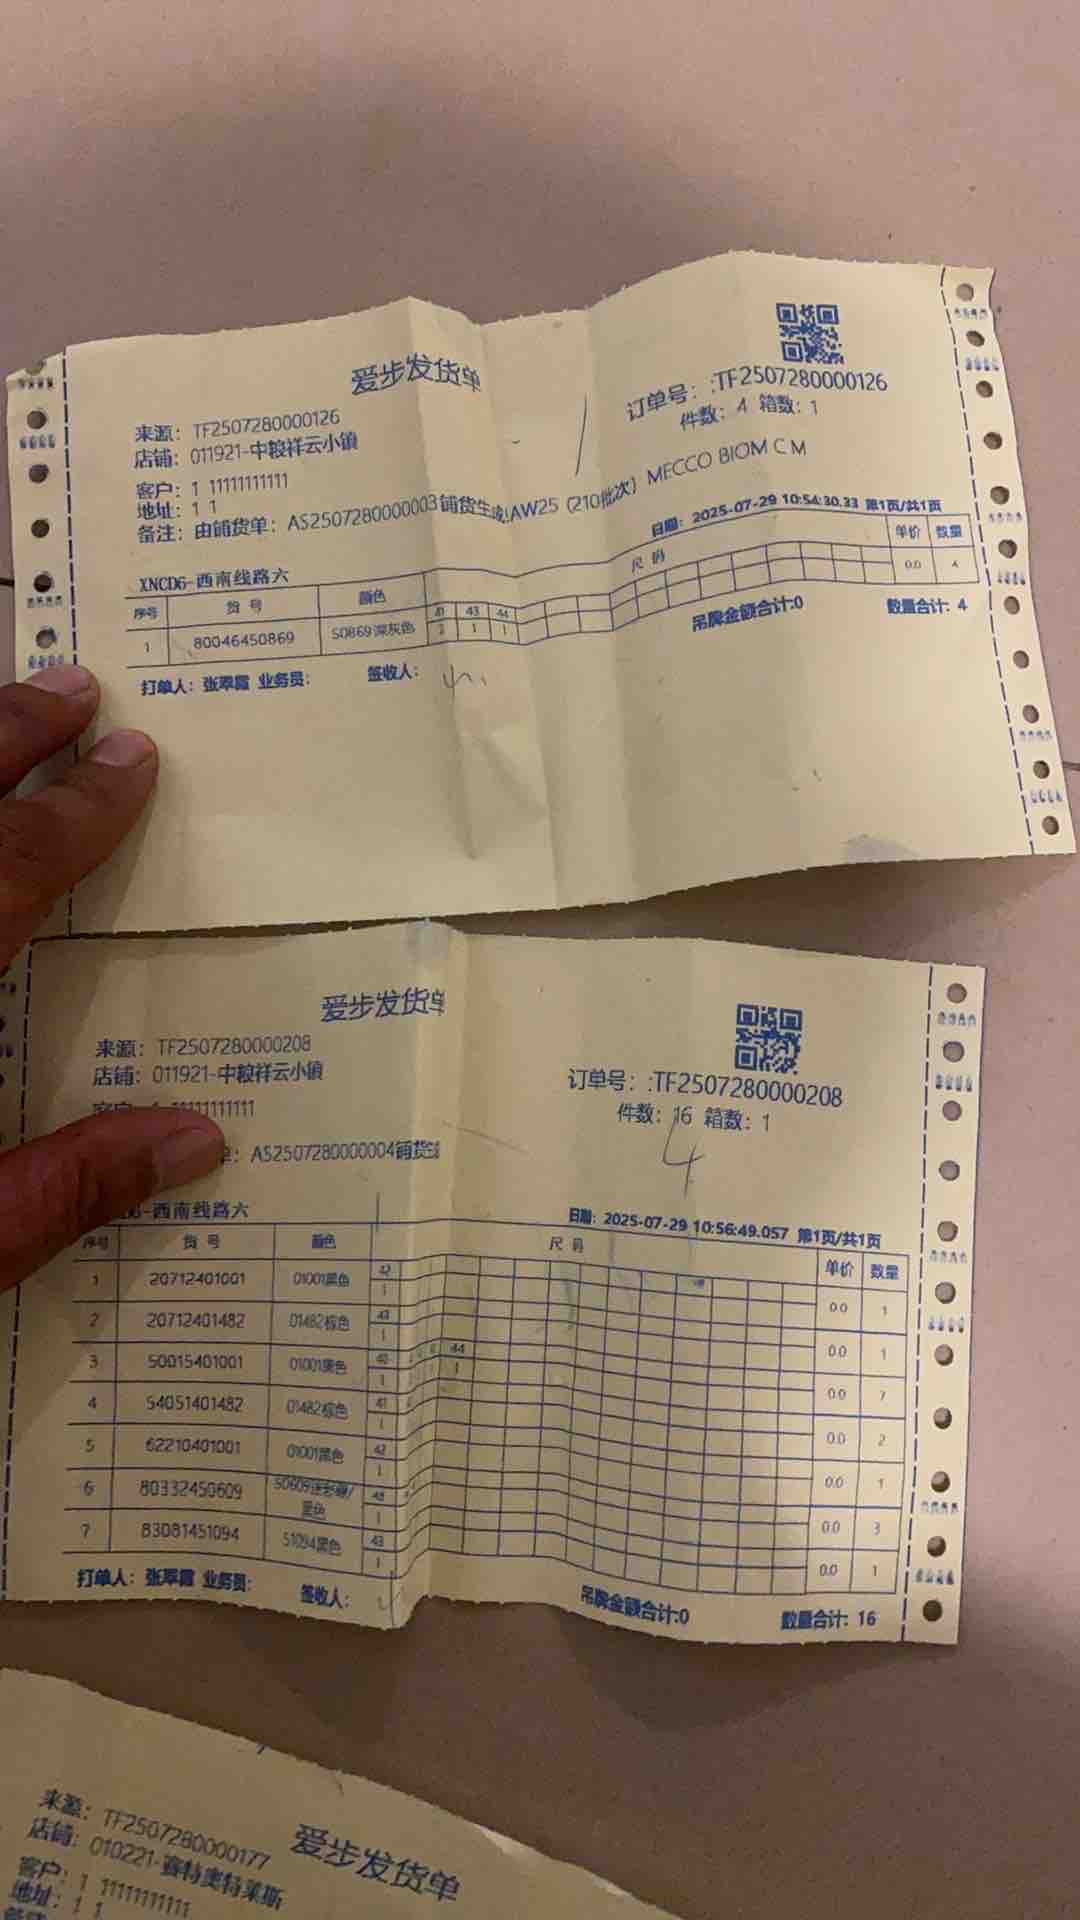 爱步发货单
来源：TF2507280000126
订单号：:TF2507280000126
店铺：011921-中粮祥云小镇
件数：4 箱数：1
客户：1 11111111111
地址：1 1
备注：由铺货单：AS2507280000003铺货生成!AW25（210批次）MECCO BIOM C M
日期：2025-07-29 10:54:30.33 第1页/共1页
XNCD6-西南线路六
序号 货号 颜色 尺码 单价 数量
41 43 44
1 80046450869 50869深灰色 2 1 1 0.0 4
吊牌金额合计:0 数量合计：4
打单人：张翠霞 业务员： 签收人：
爱步发货单
来源：TF2507280000208
订单号：:TF2507280000208
店铺：011921-中粮祥云小镇
件数：16 箱数：1
客户：1 11111111111
4
单：AS2507280000004铺货生
-西南线路六
日期：2025-07-29 10:56:49.057 第1页/共1页
序号 货号 颜色 尺码 单价 数量
42
1 20712401001 01001黑色 1 0.0 1
43
2 20712401482 01482棕色 1 0.0 1
40 44
3 50015401001 01001黑色 1 1 0.0 7
41
4 54051401482 01482棕色 1 0.0 2
42
5 62210401001 01001黑色 1 0.0 1
6 80332450609 黑色 1 0.0 3
43
7 83081451094 51094黑色 1 0.0 1
打单人：张翠霞 业务员： 签收人：
吊牌金额合计:0 数量合计：16
爱步发货单
来源：TF2507280000177
店铺：010221-赛特奥特莱斯
客户：1 11111111111
地址：1 1